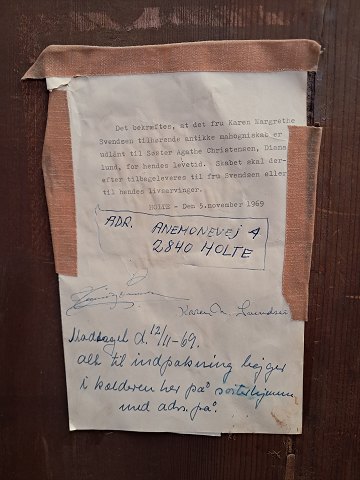 Det bekræftes, at det fru Karen Margrethe
Svendsen tilhørende antikke mahogniskab er
udlånt til Søster Agathe Christensen, Diona
lund, for hendes levetid. - Skabet skal der-
efter tilbageleveres til fru Svendsen eller
til hendes livsarvinger.
HOLTE - Den 5.november 1969
ADR. ANEMONEVEJ 4
2840 HOLTE
Karen M. Svendsen
Modtaget d. 12/11-69.
alt til indpakning ligger
i kælderen her på søsterhjemmet
med adr. på.